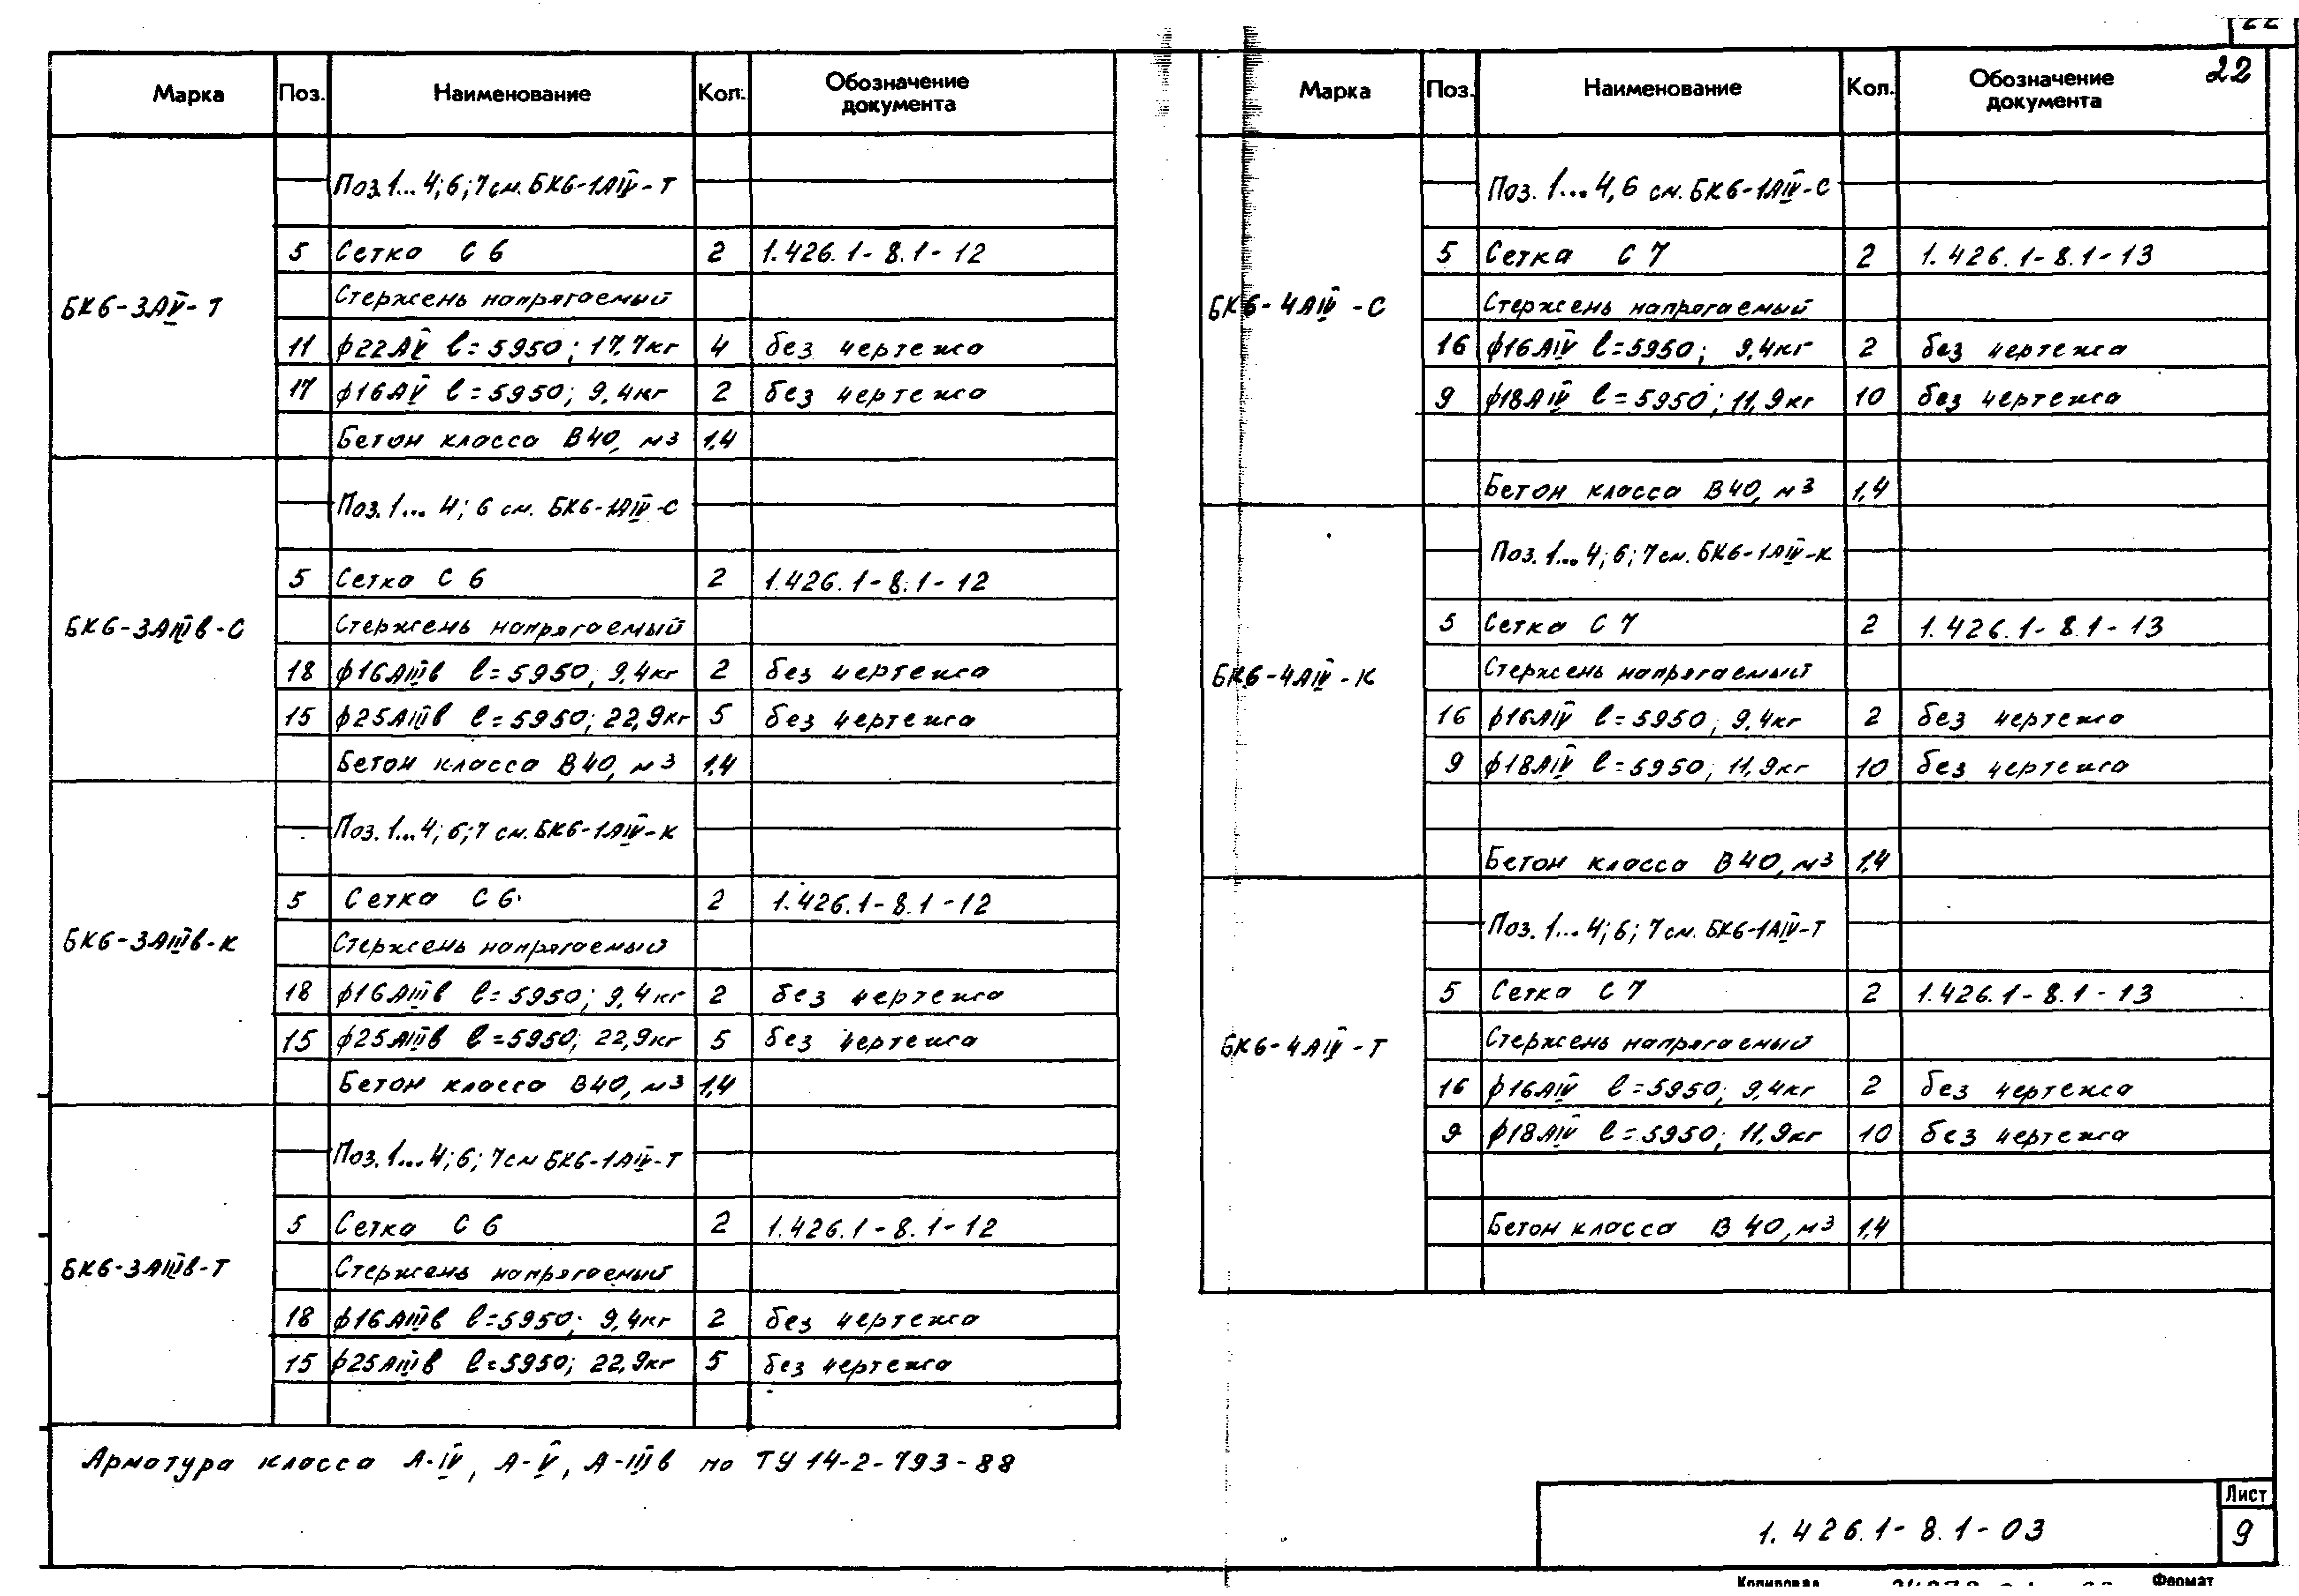 22
Марка Поз. Наименование Кол. Обозначение документа
БК6-3АV-Т
Поз.1...4;6;7 см. БК6-1АIV-Т
5 Сетка С6 2 1.426.1-8.1-12
Стержень напрягаемый
11 ф22АV l=5950; 17,7кг 4 без чертежа
17 ф16АV l=5950; 9,4кг 2 без чертежа
Бетон класса В40, м3 1,4
БК6-3АIIIв-С
Поз.1...4;6 см. БК6-1АIV-С
5 Сетка С6 2 1.426.1-8.1-12
Стержень напрягаемый
18 ф16АIIIв l=5950; 9,4кг 2 без чертежа
15 ф25АIIIв l=5950; 22,9кг 5 без чертежа
Бетон класса В40, м3 1,4
БК6-3АIIIв-К
Поз.1...4;6;7 см. БК6-1АIV-К
5 Сетка С6 2 1.426.1-8.1-12
Стержень напрягаемый
18 ф16АIIIв l=5950; 9,4кг 2 без чертежа
15 ф25АIIIв l=5950; 22,9кг 5 без чертежа
Бетон класса В40, м3 1,4
БК6-3АIIIв-Т
Поз.1...4;6;7 см БК6-1АIV-Т
5 Сетка С6 2 1.426.1-8.1-12
Стержень напрягаемый
18 ф16АIIIв l=5950; 9,4кг 2 без чертежа
15 ф25АIIIв l=5950; 22,9кг 5 без чертежа
Арматура класса А-IV, А-V, А-IIIв по ТУ 14-2-793-88
Марка Поз. Наименование Кол. Обозначение документа 22
БК6-4АIV-С
Поз. 1...4,6 см. БК6-1АIV-С
5 Сетка С7 2 1.426.1-8.1-13
Стержень напрягаемый
16 ф16АIV l=5950; 9,4кг 2 без чертежа
9 ф18АIV l=5950; 11,9кг 10 без чертежа
Бетон класса В40, м3 1,4
БК6-4АIV-К
Поз. 1...4;6;7 см. БК6-1АIV-К
5 Сетка С7 2 1.426.1-8.1-13
Стержень напрягаемый
16 ф16АIV l=5950; 9,4кг 2 без чертежа
9 ф18АIV l=5950; 11,9кг 10 без чертежа
Бетон класса В40, м3 1,4
БК6-4АIV-Т
Поз. 1...4;6;7 см. БК6-1АIV-Т
5 Сетка С7 2 1.426.1-8.1-13
Стержень напрягаемый
16 ф16АIV l=5950; 9,4кг 2 без чертежа
9 ф18АIV l=5950; 11,9кг 10 без чертежа
Бетон класса В40, м3 1,4
1.426.1-8.1-03
Лист
9
Копировал Формат